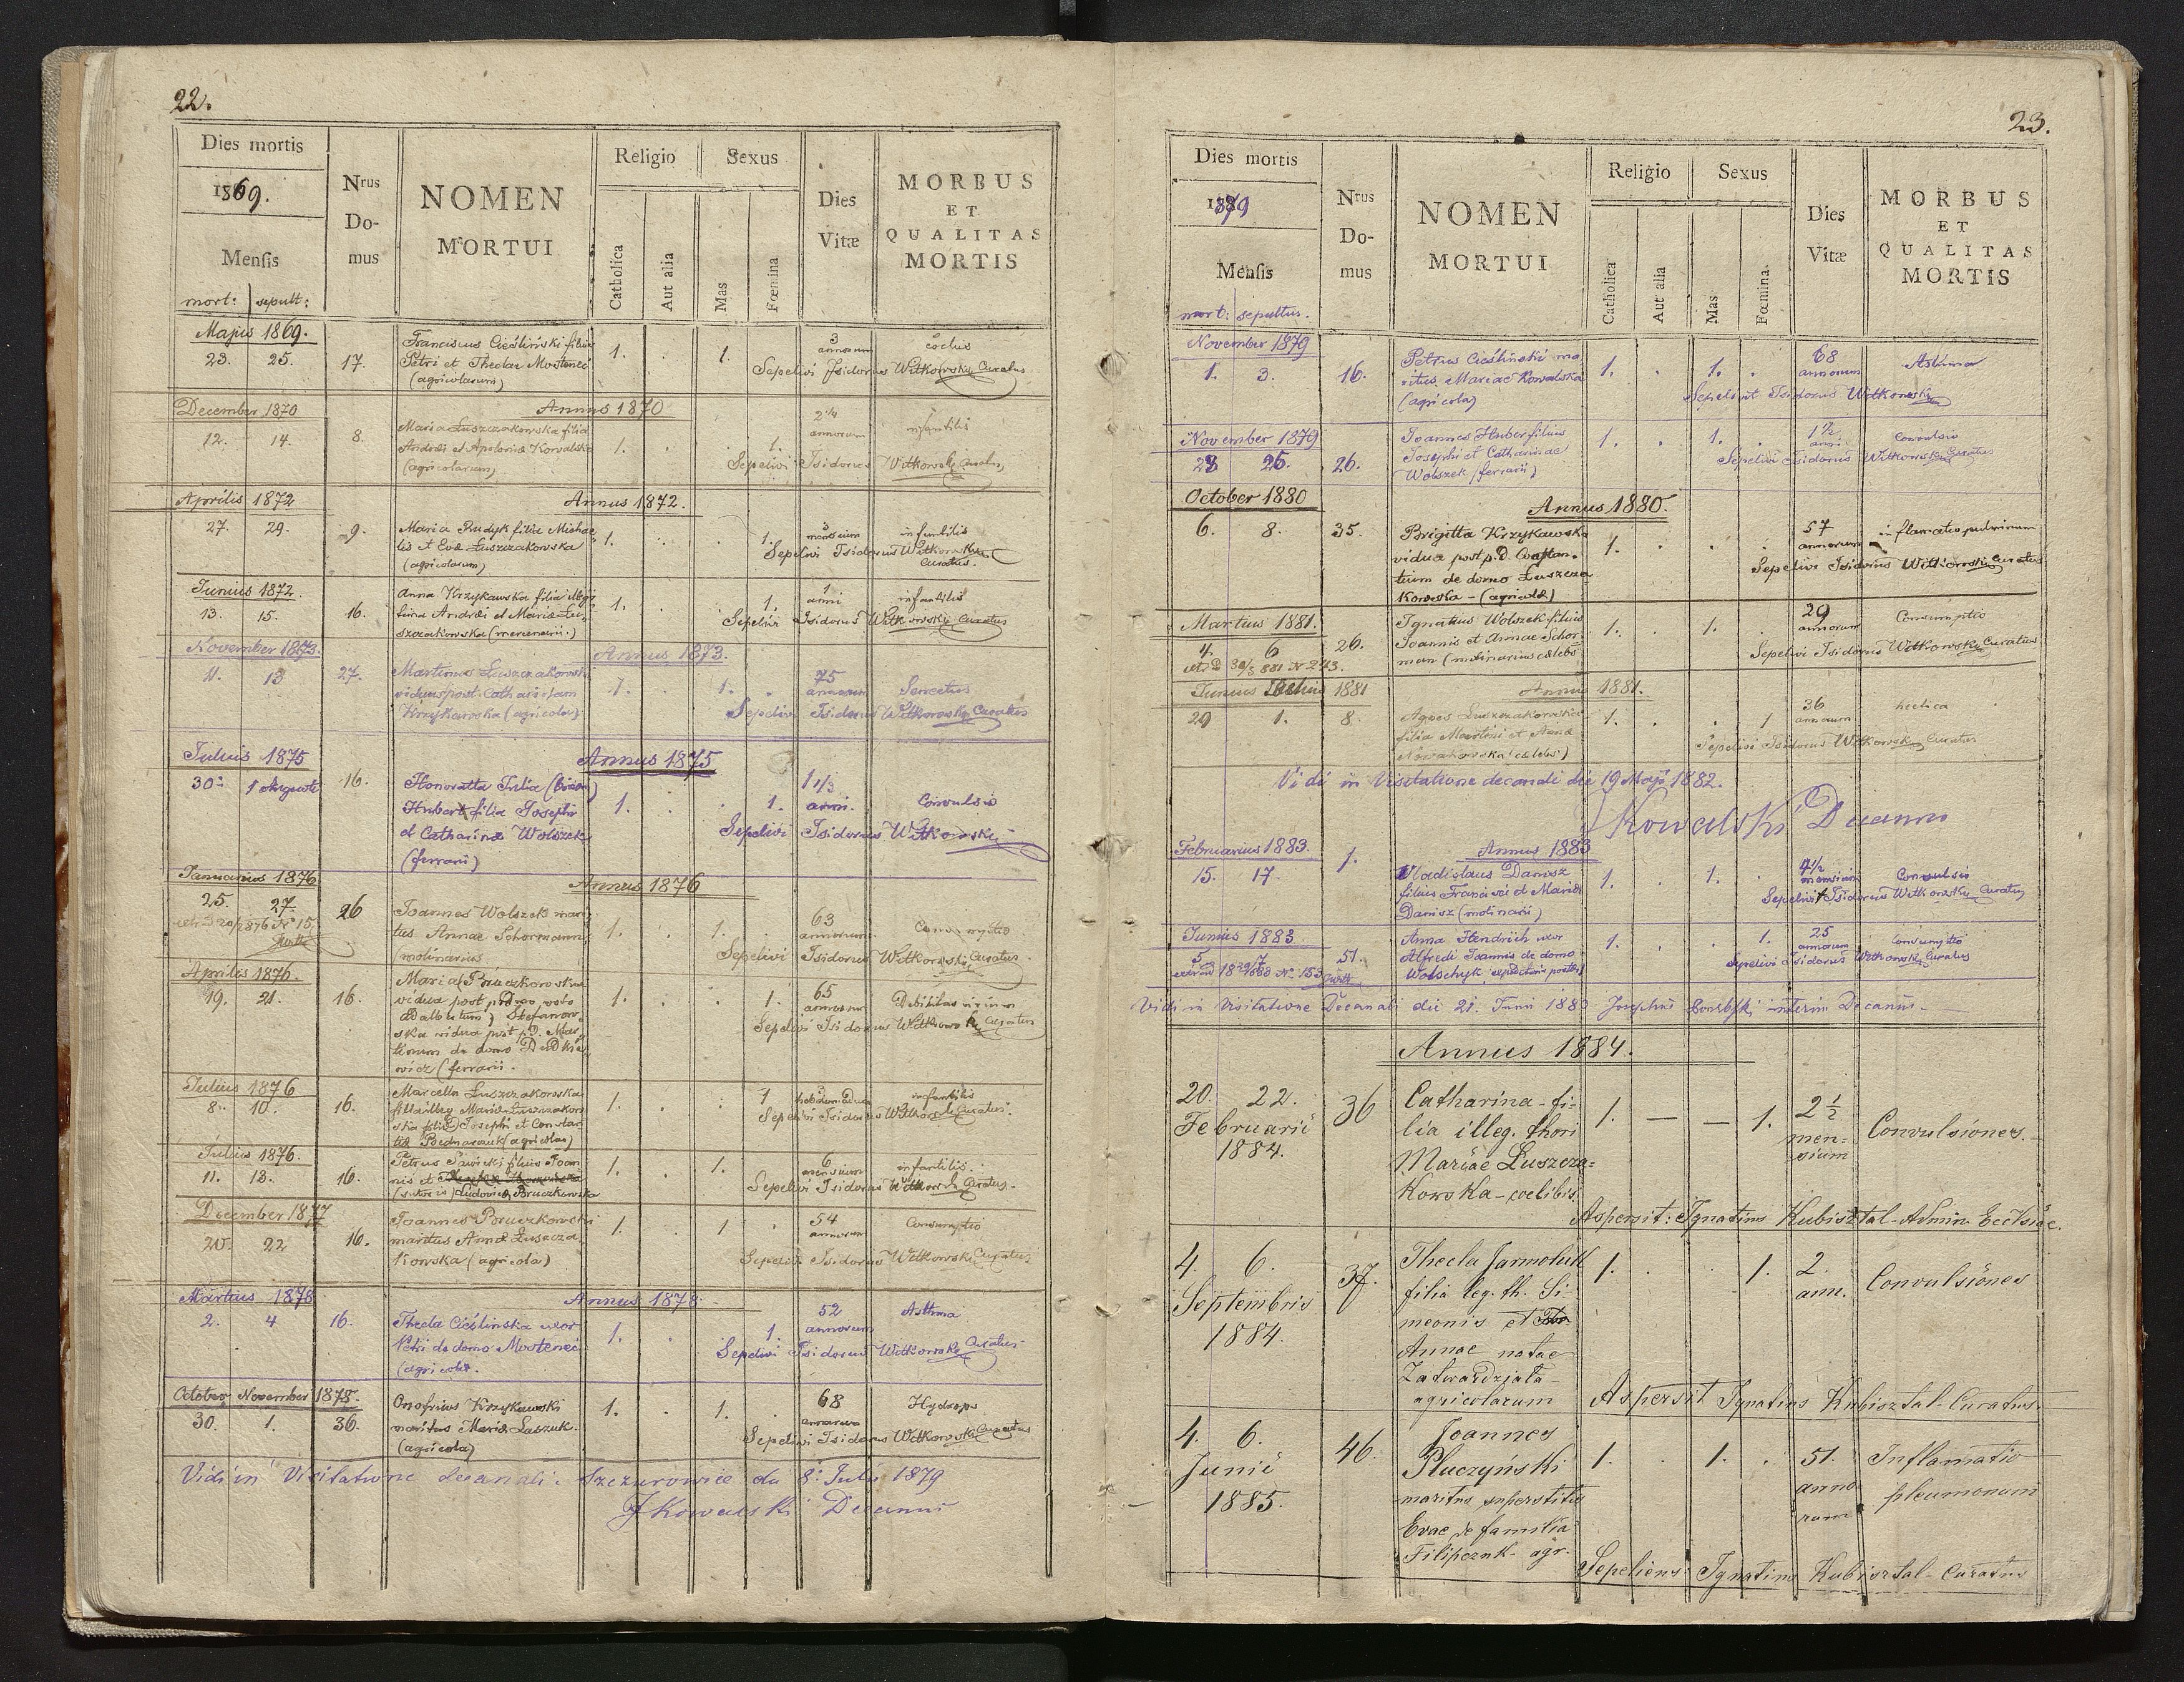 22.
Dies mortis
1869.
Mensis
mort: sepult:
Nrus Do-mus
NOMEN
MORTUI
Religio
Catholica
Aut alia
Sexus
Mas
Fœmina
Dies
Vitæ
MORBUS
ET
QUALITAS
MORTIS
Majus 1869.
23. 25. 17.
Franciscus Cieśliński filius
Petri et Theclae
(agricolarum)
1. 1.
3
annorum
Sepelivi Isidorus Witkowski Curatus
December 1870
Annus 1870
12. 14. 8.
Maria Łuszczakowska filia
Andreæ et Apolonia Kowalska
(agricolarum)
1. 1.
2 1/4
annorum
infantilis
Sepelivi Isidorus Witkowski Curatus
Aprilis 1872
Annus 1872.
27. 29. 9.
Maria Rudyk filia Michae
lis et Evæ Łuszczakowska
(agricolarum)
1. 1.
3
mensium
infantilis
Sepelivi Isidorus Witkowski
Curatus.
Junius 1872.
13. 15. 16.
Anna Krzykawska filia illegi
tima Andreæ et Mariæ Łu-
szczakowska (mercenarii.)
1. 1.
1
anni
infantilis
Sepelivi Isidorus Witkowski Curatus
November 1873.
Annus 1873.
11. 13 27.
Martinus Łuszczakowski
viduus post Catharinam
Krzykawska (agricola)
1. 1.
75
annorum
Senectus
Sepelivi Isidorus Witkowski Curatus
Julius 1875
Annus 1875
30. 1 Augusti 16.
Honoratta Julia
Hubert filia Josephi
et Catharinæ Wolszek
(ferrarii)
1. 1.
1 1/3
anni.
Convulsio
Sepelivi Isidorus Witkowski
Januarius 1876
Annus 1876
25. 27. 26
Joannes Wolszek mari
tus Annae Schormann
(molinarius
1. 1.
63
annorum
Consumptio
Sepelivi Isidorus Witkowski Curatus
Aprilis 1876.
19. 21. 16.
Maria Bruczkowska
vidua post
Adalbertum,
ska vidua post p.D. Mar
tinum de domo Dudkie
wicz (ferrarii.
1. 1.
65
annorum
Debilitas virium
Sepelivi Isidorus Witkowski Curatus
Julius 1876
8. 10. 16.
Marcella Łuszczakowska
filia illeg. Mariæ Łuszczakow
ska filiæ Josephi et Constan
tiæ Bednarczuk (agricolar)
1. 1
3
hebdomadum
infantilis
Sepelivi Isidorus Witkowski Curatus.
Julius 1876.
11. 13. 16.
Petrus Sawicki filius Joan
nis et
(sutoris) Ludovicæ Bruczkowska
1. 1.
6
mensium
infantilis.
Sepelivi Isidorus Witkowski Curatus.
December 1877
20. 22 16.
Joannes Bruczkowski
maritus Annæ Łuszcza
kowska (agricola)
1. 1
54
annorum
Consumptio
Sepelivi Isidorus Witkowski Curatus
Martius 1878
Annus 1878.
2. 4 16.
Thecla Cieślinska uxor
Petri de domo
(agricolæ.
1. 1.
52
annorum
Asthma
Sepelivi Isidorus Witkowski Curatus
October November 1878.
30. 1. 36.
Onofrius Krzykawski
maritus Mariæ Laszuk.
(agricola)
1. 1.
68
annorum
Hydrops
Sepelivi Isidorus Witkowski Curatus
Vidi in Visitatione decanali Szczurowice die 8. Julii 1879
J Kowalski Decanus
23.
Dies mortis
1879
Mensis
mort: sepultus.
Nrus Do-mus
NOMEN
MORTUI
Religio
Catholica
Aut alia
Sexus
Mas
Fœmina
Dies
Vitæ
MORBUS
ET
QUALITAS
MORTIS
November 1879
1. 3. 16.
Petrus Cieśliński ma
ritus Mariae Kowalska
(agricola)
1. 1.
68
annorum
Asthma
Sepelivit Isidorus Witkowski
November 1879
23 25. 26.
Joannes Huber filius
Josephi et Catharinae
Wolszek (ferrarii)
1. 1.
1 1/2
anni
Convulsio
Sepelivi Isidorus Witkowski Curatus
October 1880
Annus 1880.
6. 8. 35.
Brigitta Krzykawska
vidua post p.D. Constan-
tium de domo Łuszcza
kowska - (agricolæ)
1.
57
annorum
inflamatio pulmonum
Sepelivi Isidorus Witkowski Curatus
Martius 1881.
4. 6 26.
Ignatius Wolszek filius
Joannis et Annae Schor
man (molinarius cælebs
1. 1.
29
annorum
Consumptio
Sepelivi Isidorus Witkowski Curatus
Junius Julius 1881
Annus 1881.
29 1. 8.
Agnes Łuszczakowska
filia Martini et Annæ
Nowakowska (cælebs)
1. 1
36
annorum
hectica
Sepelivi Isidorus Witkowski Curatus
Vidi in Visitatione decanali die 19 Maji 1882.
J Kowalski Decanus
Februarius 1883.
Annus 1883
15. 17 1.
Vladislaus Danisz
filius Francisci et Mariæ
Danisz (molinarii)
1. 1.
4 1/2
mensium
Convulsio
Sepelivit Isidorus Witkowski Curatus
Junius 1883
5 7 51.
Anna Hendrich uxor
Alfredi Joannis de domo
Wolschyk
1. 1.
25
annorum
Consumptio
Sepelivi Isidorus Witkowski Curatus
Vidi in Visitatione Decanali die 21. Junii 1883 Josephus interim Decanus.
Annus 1884.
20. 22.
Februarii
1884.
36
Catharina - fi-
lia illeg. thori
Mariae Łuszcza-
kowska - coelibis.
1. — — 1.
2 1/2
men-
sium
Convulsiones.
Aspersit: Ignatius Kubisztal - Admin. Ecclesiae.
4. 6.
Septembris
1884.
37.
Thecla Jarmoluk
filia leg. th. Si-
meonis et
Annae natae
Zatwardziała
agricolarum
1. 1.
2.
ann.
Convulsiones
Aspersit Ignatius Kubisztal - Curatus.
4. 6.
Junii
1885.
46.
Joannes
Pluczyński
maritus superstitis
Evae de familia
Filipczuk - agr.
1. 1.
51.
anno
rum
Inflamatio
pleumonum
Sepeliens: Ignatius Kubisztal - Curatus